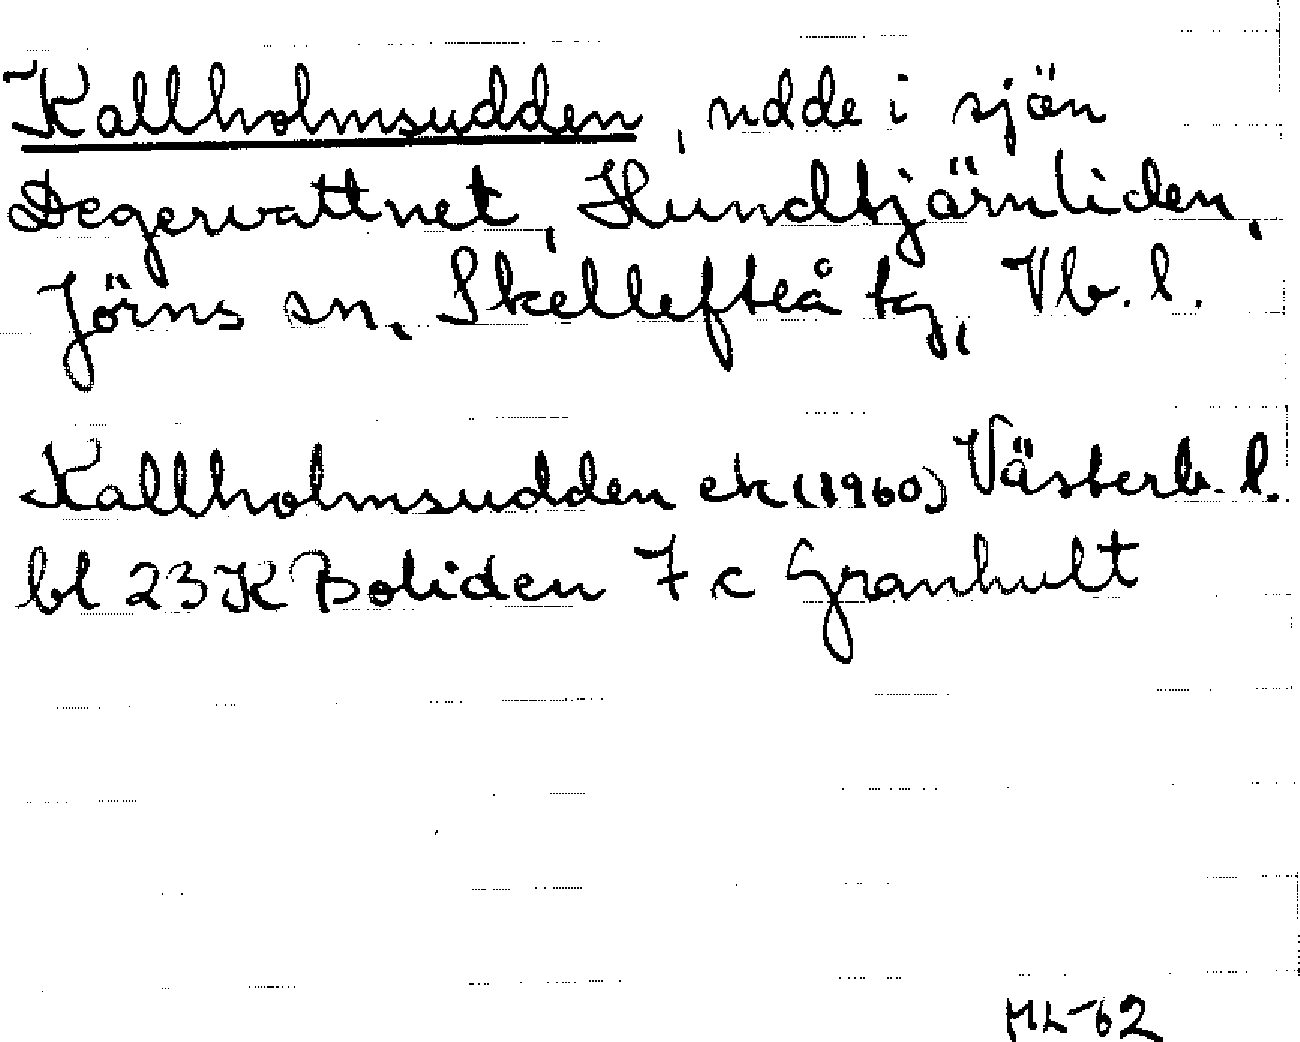 Kallholmsudden, udde i sjön
Degervattnet, Hundtjärnliden,
Jörns sn, Skellefteå tg, Vb. l.
Kallholmsudden ek (1960) Västerb. l.
bl 23 K Boliden 7 c Granhult
HL-62